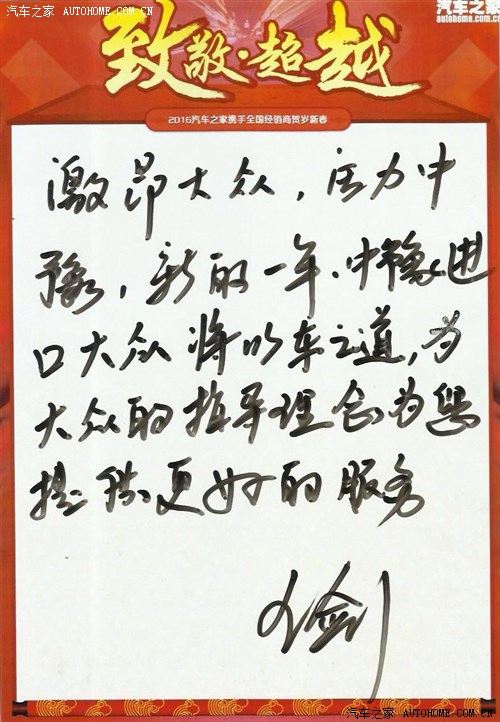 汽车之家 AUTOHOME.COM.CN
汽车之家
autohome.com.cn
致敬·超越
2016汽车之家携手全国经销商贺岁新春
激昂大众，活力中
豫，新的一年，中豫进
口大众将以车之道，为
大众的指导理念为您
提供更好的服务
剑
汽车之家 AUTOHOME.COM.CN